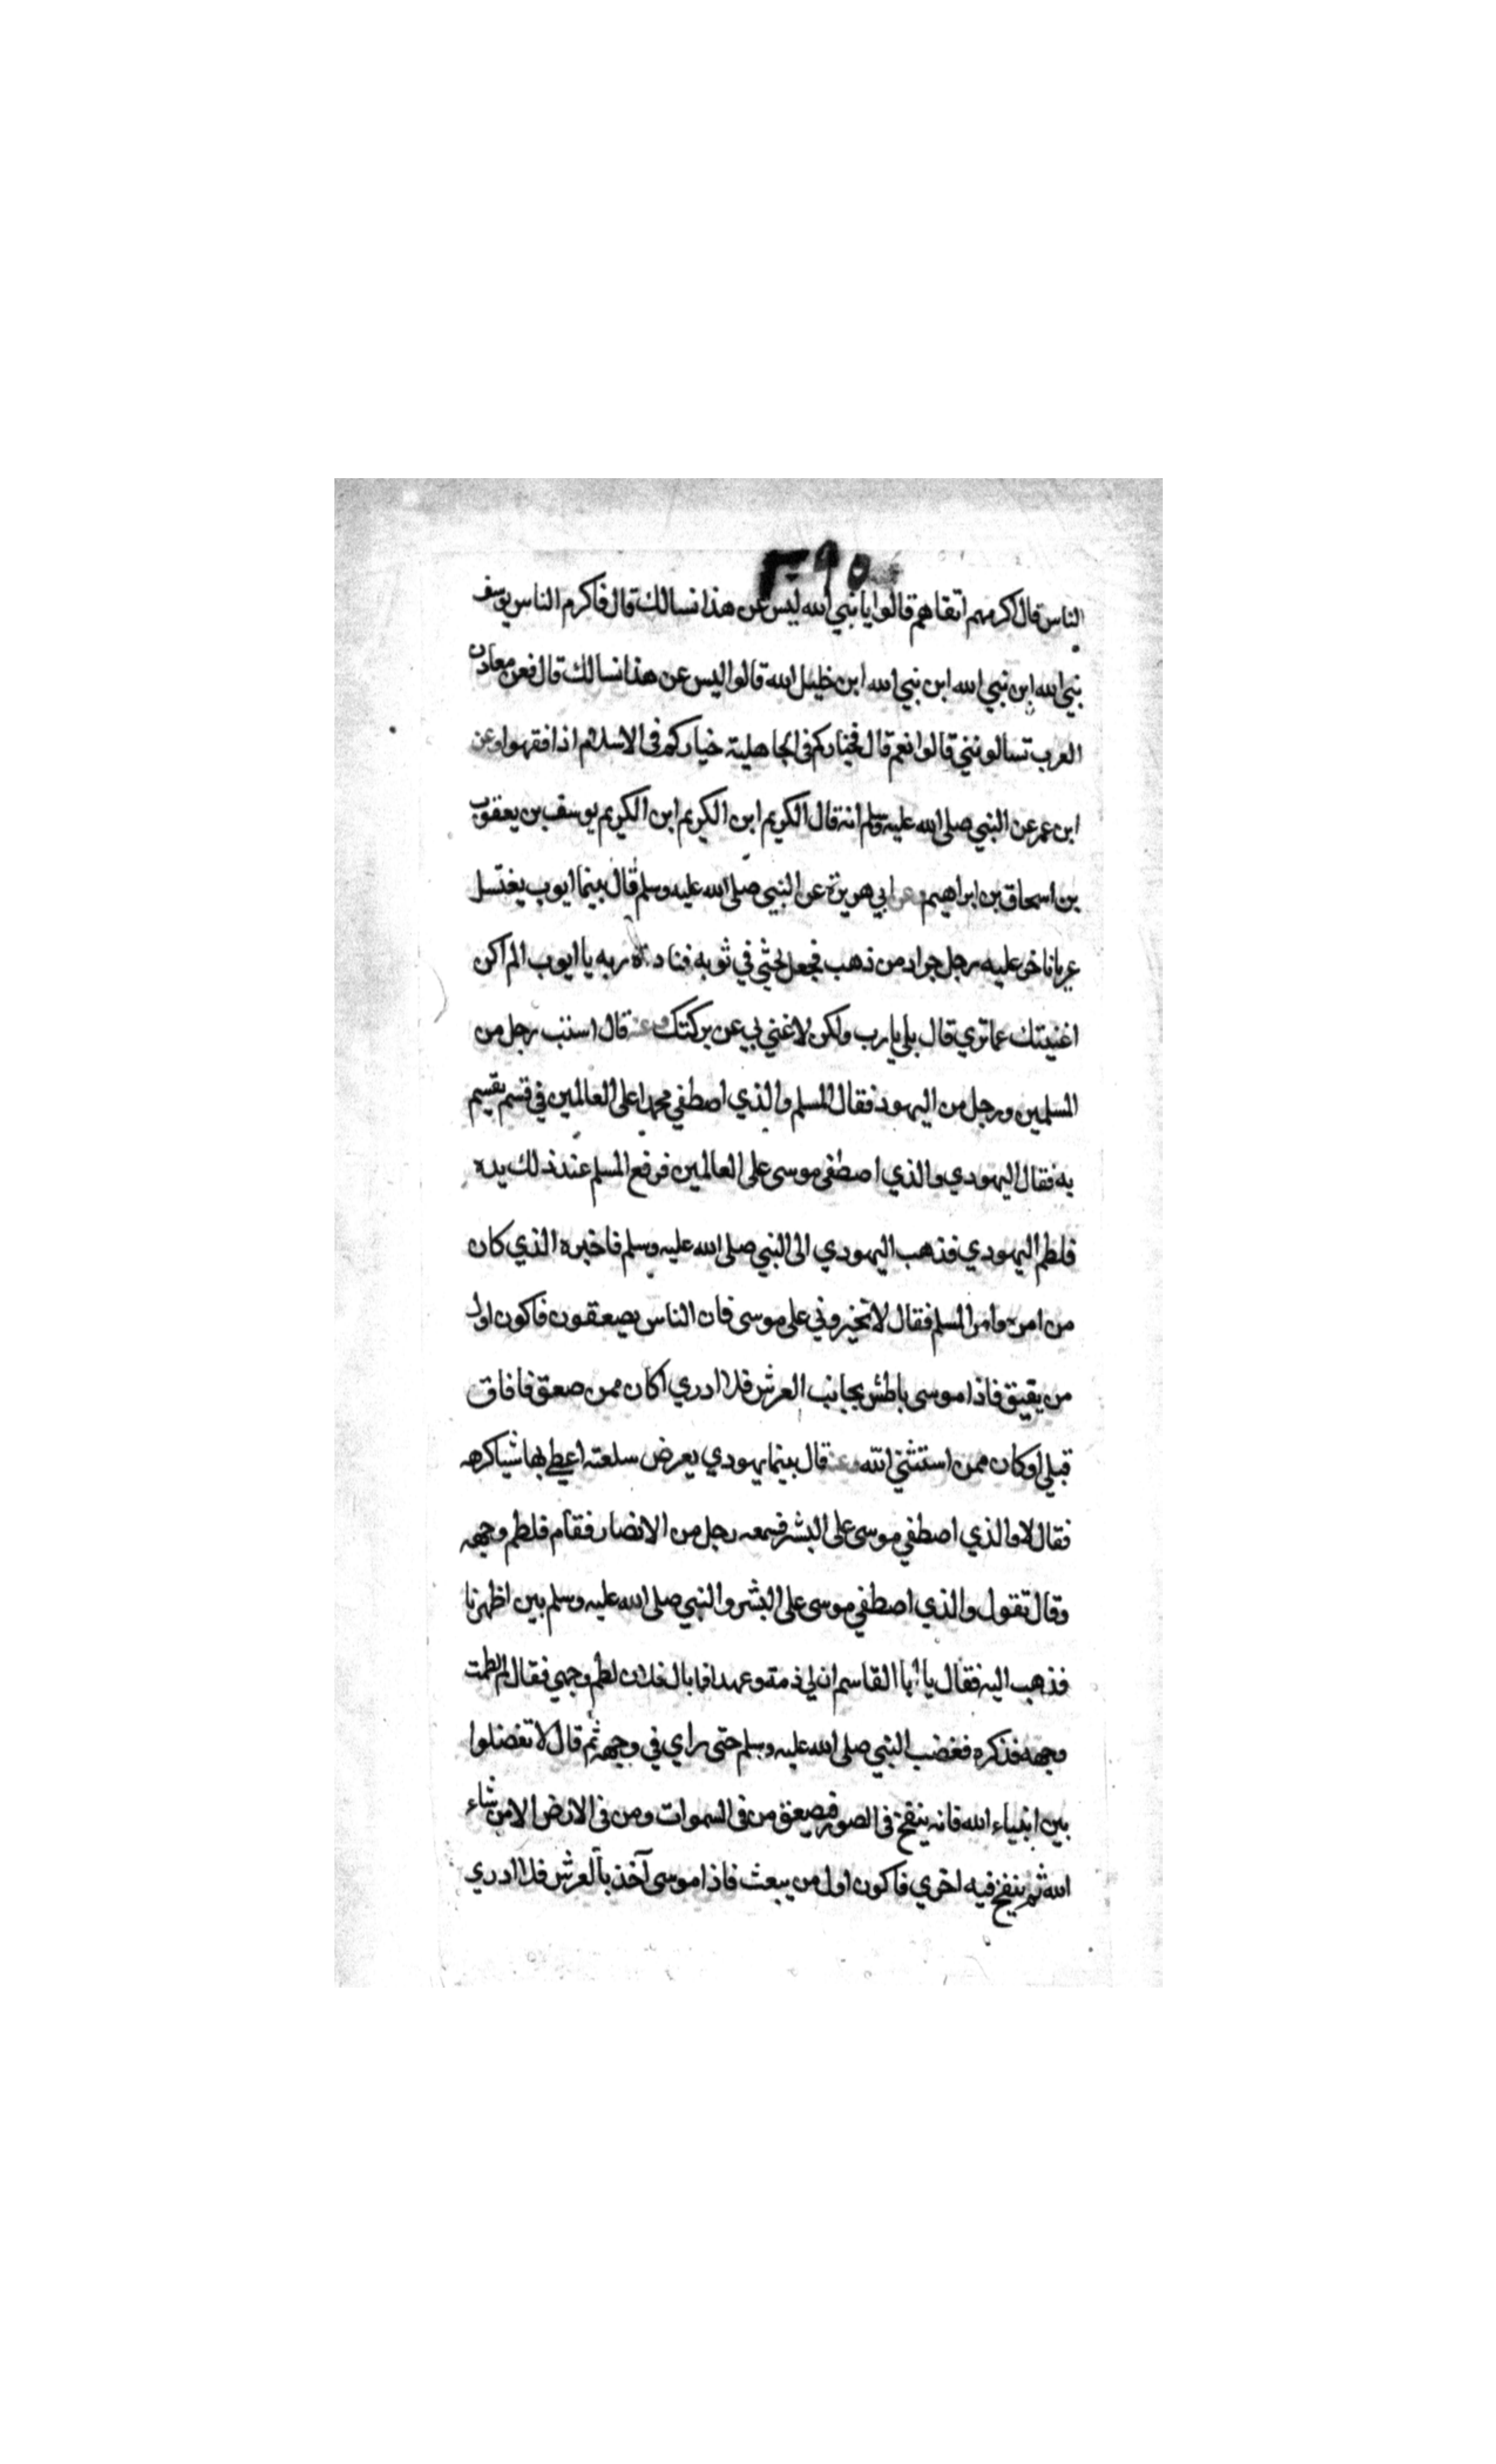 ٣٩٥
الناس قال اكرمهم اتقاهم قالوا يا نبي الله ليس عن هذا نسالك قال فاكرم الناس يوسف
نبي الله ابن نبي الله ابن نبي الله ابن خليل الله قالوا ليس عن هذا نسالك قال فعن معادن
العرب تسالونني قالوا نعم قال فخياركم في الجاهلية خياركم في الاسلام اذا فقهوا وعن
ابن عمر عن النبي صلى الله عليه وسلم انه قال الكريم ابن الكريم ابن الكريم يوسف بن يعقوب
بن اسحاق بن ابراهيم وعن ابي هريرة عن النبي صلى الله عليه وسلم قال بينما ايوب يغتسل
عريانا خر عليه رجل جراد من ذهب فجعل يحثي في ثوبه فناداه ربه يا ايوب الم اكن
اغنيتك عما تري قال بلى يا رب ولكن لا غني بي عن بركتك وعنه قال استب رجل من
المسلمين ورجل من اليهود فقال المسلم والذي اصطفي محمدا على العالمين في قسم يقسم
به فقال اليهودي والذي اصطفى موسى على العالمين فرفع المسلم عند ذلك يده
فلطم اليهودي فذهب اليهودي الى النبي صلى الله عليه وسلم فاخبره الذي كان
من امره وامر المسلم فقال لا تخيروني على موسى فان الناس يصعقون فاكون اول
من يفيق فاذا موسى باطش بجانب العرش فلا ادري اكان ممن صعق فافاق
قبلي او كان ممن استثني الله وعنه قال بينما يهودي يعرض سلعته اعطي بها شيا كرهه
فقال لا والذي اصطفي موسى على البشر فسمعه رجل من الانصار فقام فلطم وجهه
وقال تقول والذي اصطفي موسى على البشر والنبي صلى الله عليه وسلم بين اظهرنا
فذهب اليه فقال يا ابا القاسم ان لي ذمة وعهدا فما بال فلان لطم وجهي فقال لم لطمت
وجهه فذكره فغضب النبي صلى الله عليه وسلم حتى راي في وجهه ثم قال لا تفضلوا
بين انبياء الله فانه ينفخ في الصور فيصعق من في السموات ومن في الارض الا من شاء
الله ثم ينفخ فيه اخري فاكون اول من يبعث فاذا موسى آخذ بالعرش فلا ادري